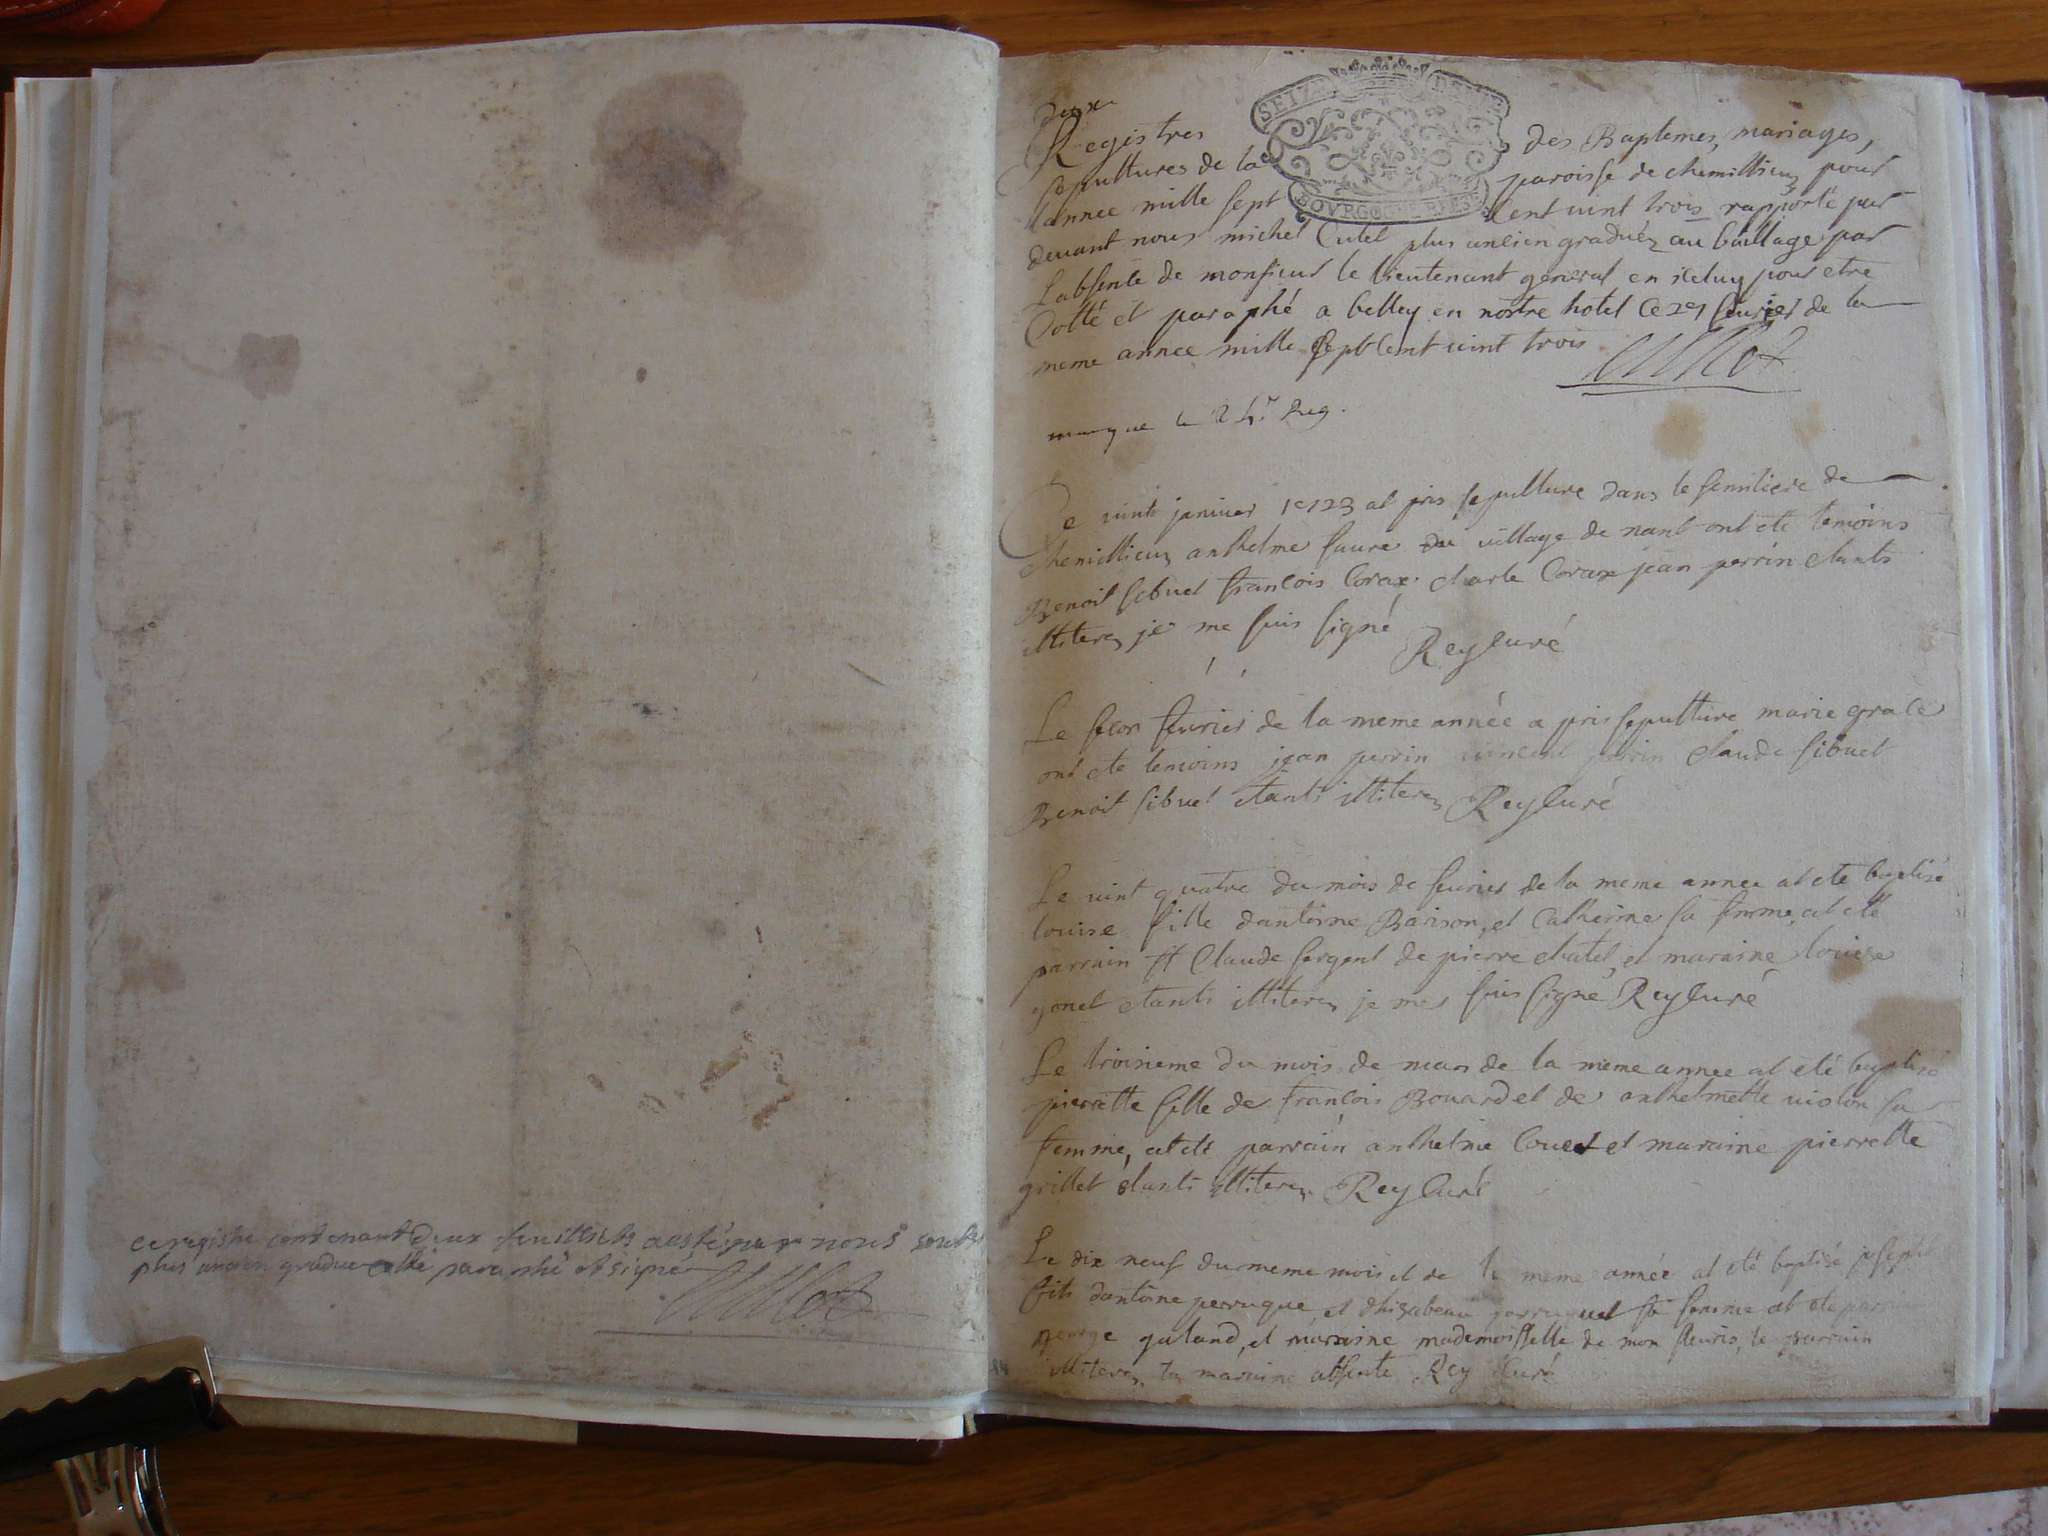 ce registre contenant deux feuillets a esté par nous
plus ancien gradue cotté paraphé et signé
deux
SEIZ DENIE
BOVRGOGNE BRESSE
Registres des Baptemes, mariages,
sepultures de la paroisse de chemillieu pour
lannee mille sept Cent vint trois rapporté par
devant nous michel Cullet plus ancien gradué au baillage par
Labsence de monsieur le lieutenant general en iceluy pour etre
Cotté et paraphé a belley en nostre hotel Ce 29 feurier de la
meme annee mille sept Cent vint trois
Le vint janvier 1723 at pris sepulture dans le semitiere de
chemillieu anthelme faure du village de nant ont ete temoins
Benoit sibuet francois Corax charle Corax jean perrin etants
illiteres je me suis signé
Rey Curé
Le secon feurier de la meme année a pris sepulture marie grace
ont ete temoins jean perrin vincent perrin claude sibuet
Benoit sibuet etants illiteres Rey Curé
Le vint quatre du mois de feurier de la meme annee at ete baptisé
louise fille dantoine Barison, et Catherine sa femme, at ete
parrain Claude sergent de pierre chatel, et maraine louise
gonet etants illiteres je me suis signé Rey Curé
Le troisieme du mois de mars de la meme annee at eté baptisé
pierrette fille de francois Bouard et de anthelmette violon sa
femme, at eté parrain anthelme Couet et maraine pierrette
grillet etants illiteres Rey Curé
Le dix neuf du meme mois et de la meme année at eté baptisé joseph
fils dantoine perruque, et dhisabeau perruquet sa femme at ete parrain
george galand, et maraine mademoisselle de mon fleuris, le parrain
illiteres, la maraine absente Rey Curé